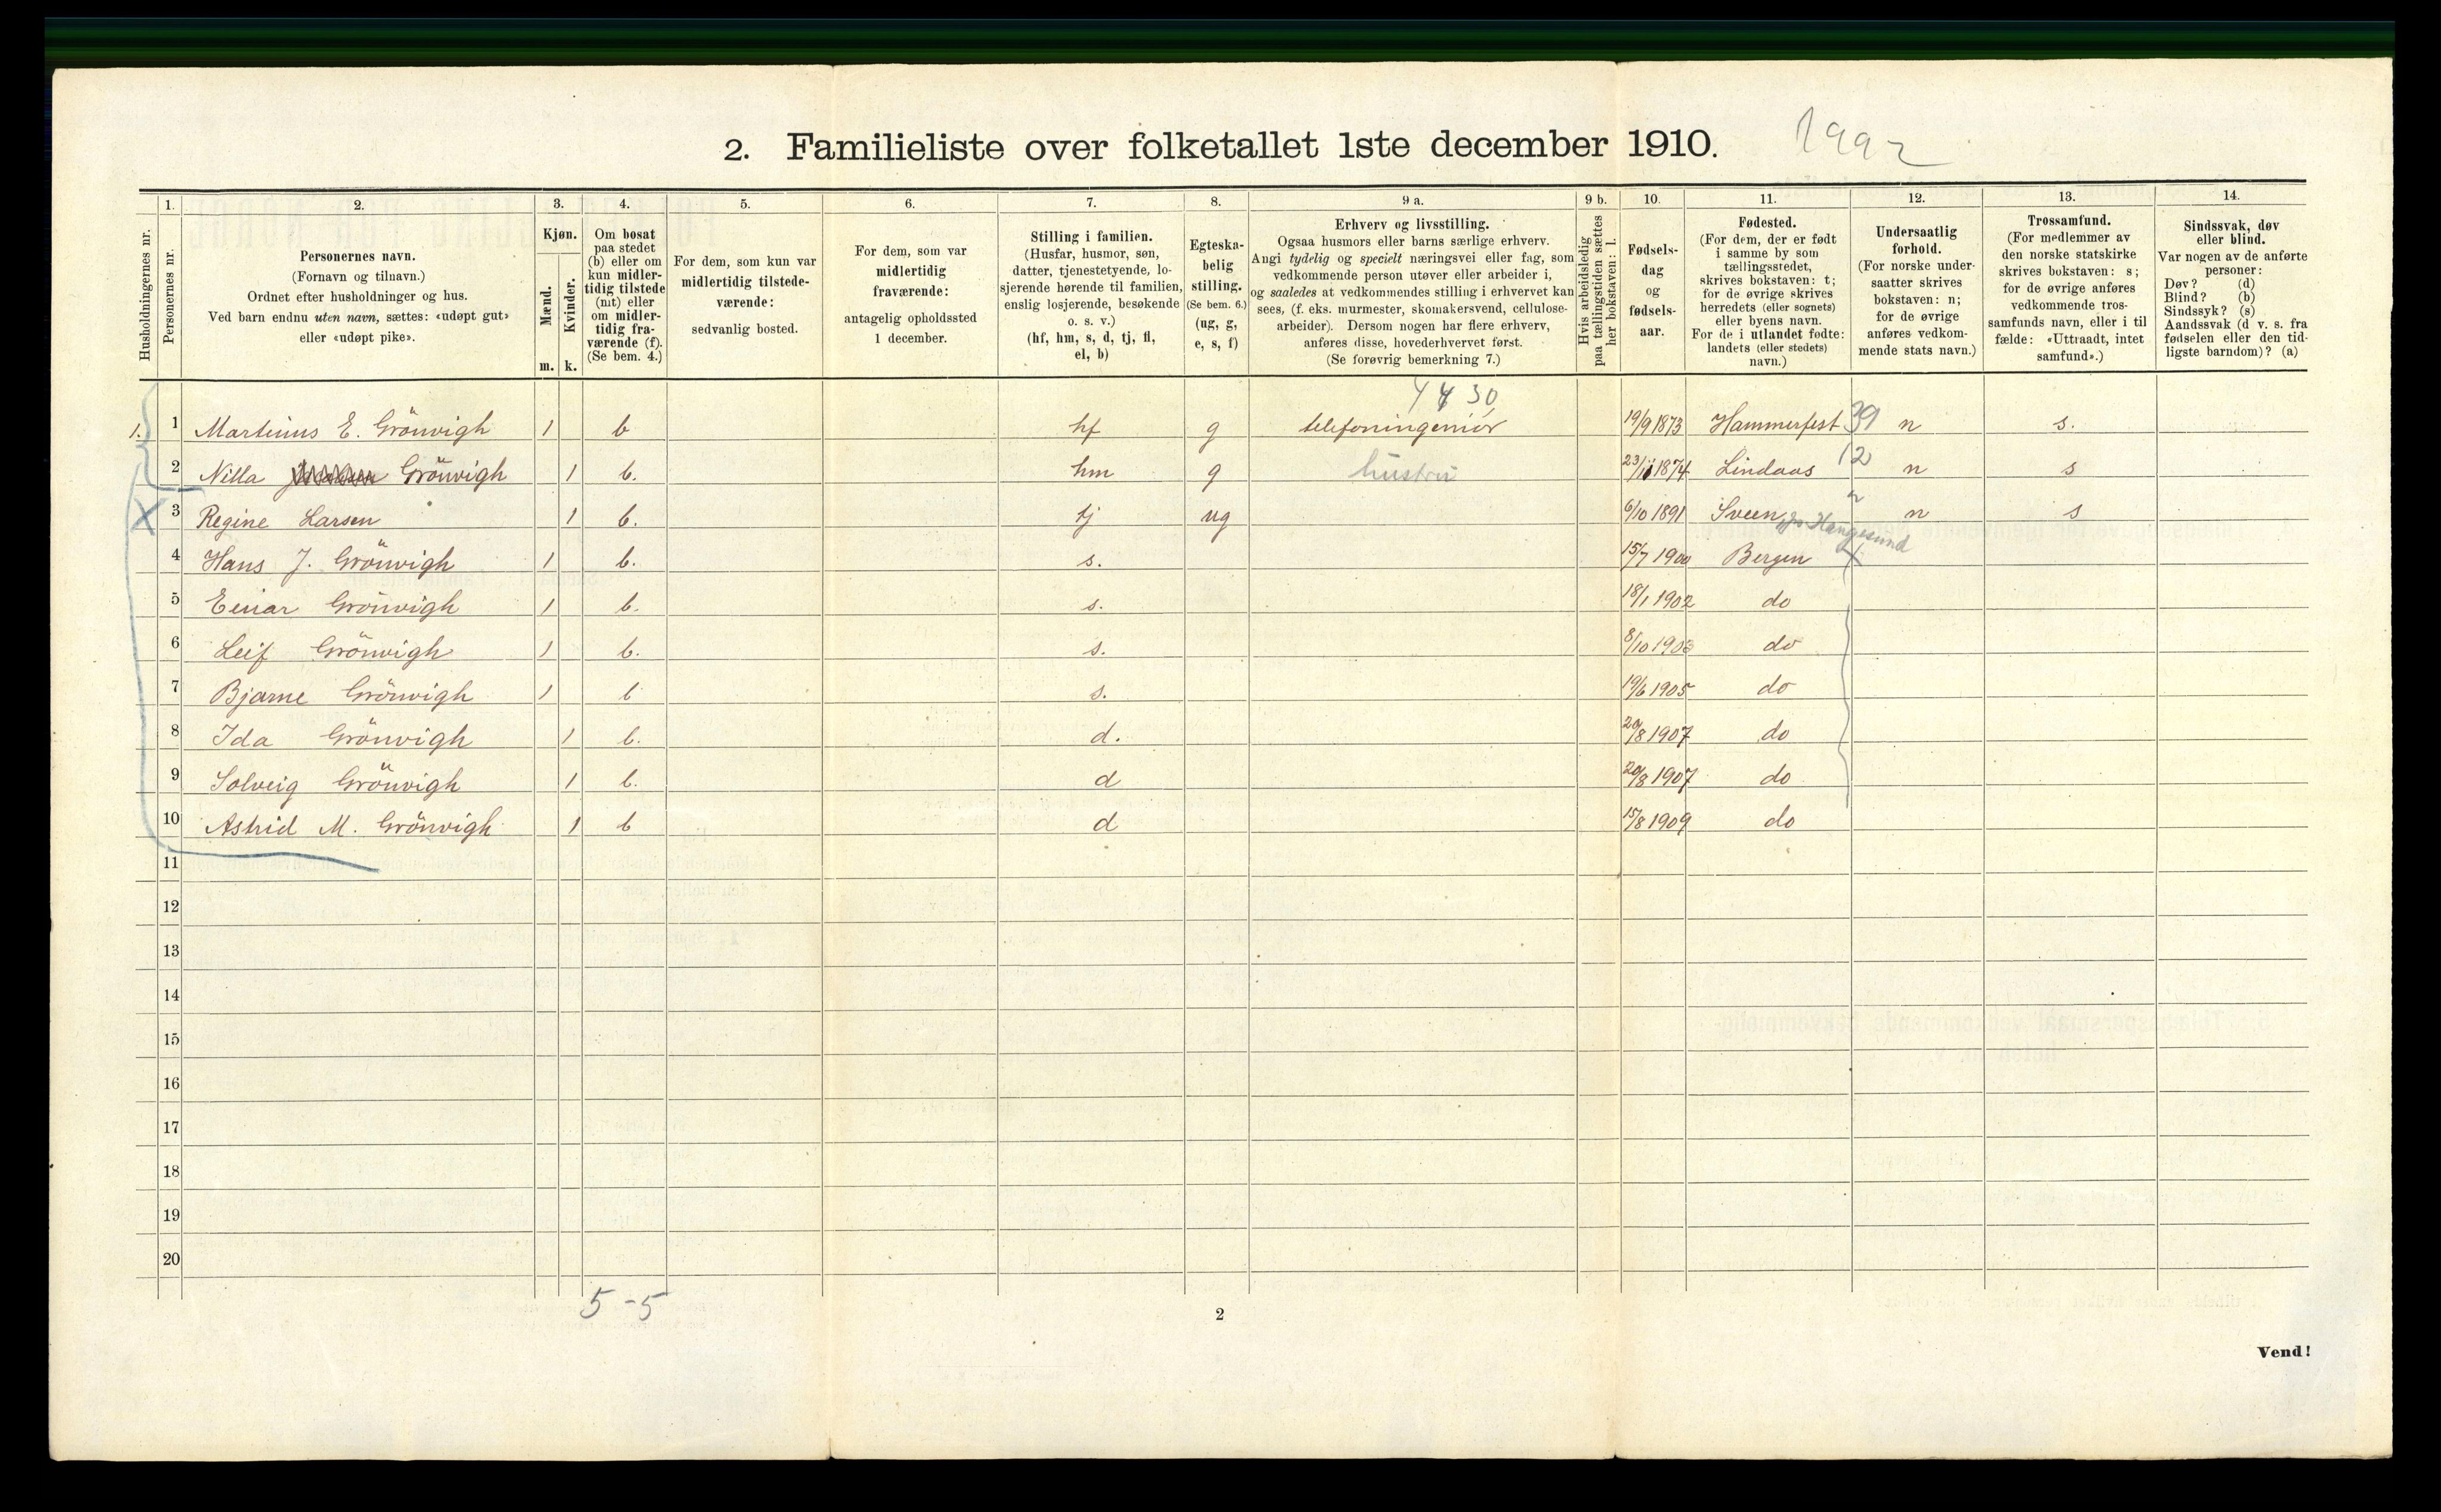 2. Familieliste over folketallet 1ste december 1910. 1992
1. 2. 3. 4. 5. 6. 7. 8. 9 a. 9 b. 10. 11. 12. 13. 14.
Husholdningernes nr.
Personernes nr.
Personernes navn.
(Fornavn og tilnavn.)
Ordnet efter husholdninger og hus.
Ved barn endnu uten navn, sættes: «udøpt gut»
eller «udøpt pike».
Kjøn.
Mænd.
Kvinder.
m. k.
Om bosat
paa stedet
(b) eller om
kun midler-
tidig tilstede
(mt) eller
om midler-
tidig fra-
værende (f).
(Se bem. 4.)
For dem, som kun var
midlertidig tilstede-
værende:
sedvanlig bosted.
For dem, som var
midlertidig
fraværende:
antagelig opholdssted
1 december.
Stilling i familien.
(Husfar, husmor, søn,
datter, tjenestetyende, lo-
sjerende hørende til familien,
enslig losjerende, besøkende
o. s. v.)
(hf, hm, s, d, tj, fl,
el, b)
Egteska-
belig
stilling.
(Se bem. 6.)
(ug, g,
e, s, f)
Erhverv og livsstilling.
Ogsaa husmors eller barns særlige erhverv.
Angi tydelig og specielt næringsvei eller fag, som
vedkommende person utøver eller arbeider i,
og saaledes at vedkommendes stilling i erhvervet kan
sees, (f. eks. murmester, skomakersvend, cellulose-
arbeider). Dersom nogen har flere erhverv,
anføres disse, hovederhvervet først.
(Se forøvrig bemerkning 7.)
Hvis arbeidsledig
paa tællingstiden sættes
her bokstaven: l.
Fødsels-
dag
og
fødsels-
aar.
Fødested.
(For dem, der er født
i samme by som
tællingsstedet,
skrives bokstaven: t;
for de øvrige skrives
herredets (eller sognets)
eller byens navn.
For de i utlandet fødte:
landets (eller stedets)
navn.)
Undersaatlig
forhold.
(For norske under-
saatter skrives
bokstaven: n;
for de øvrige
anføres vedkom-
mende stats navn.)
Trossamfund.
(For medlemmer av
den norske statskirke
skrives bokstaven: s;
for de øvrige anføres
vedkommende tros-
samfunds navn, eller i til-
fælde: «Uttraadt, intet
samfund».)
Sindssvak, døv
eller blind.
Var nogen av de anførte
personer:
Døv? (d)
Blind? (b)
Sindssyk? (s)
Aandssvak (d. v. s. fra
fødselen eller den tid-
ligste barndom)? (a)
4430
1. 1 Martinius E. Grönvigh 1 b hf g telefoningeniör 19/9 1873 Hammerfest 39 n s.
2 Nilla Grönvigh 1 b. hm g hustru 23/11 1874 Lindaas 12 n s
X 3 Regine Larsen 1 b. tj ug 6/10 1891 Sveen, Haugesund n s
4 Hans J. Grönvigh 1 b. s. 15/7 1900 Bergen
5 Einar Grönvigh 1 b. s. 18/1 1902 do
6 Leif Grönvigh 1 b. s. 8/10 1903 do
7 Bjarne Grönvigh 1 b s. 19/6 1905 do
8 Ida Grönvigh 1 b. d. 29/8 1907 do
9 Solveig Grönvigh 1 b. d 29/8 1907 do
10 Astrid M. Grönvigh 1 b d 15/8 1909 do
11
12
13
14
15
16
17
18
19
20
5-5
2
Vend!